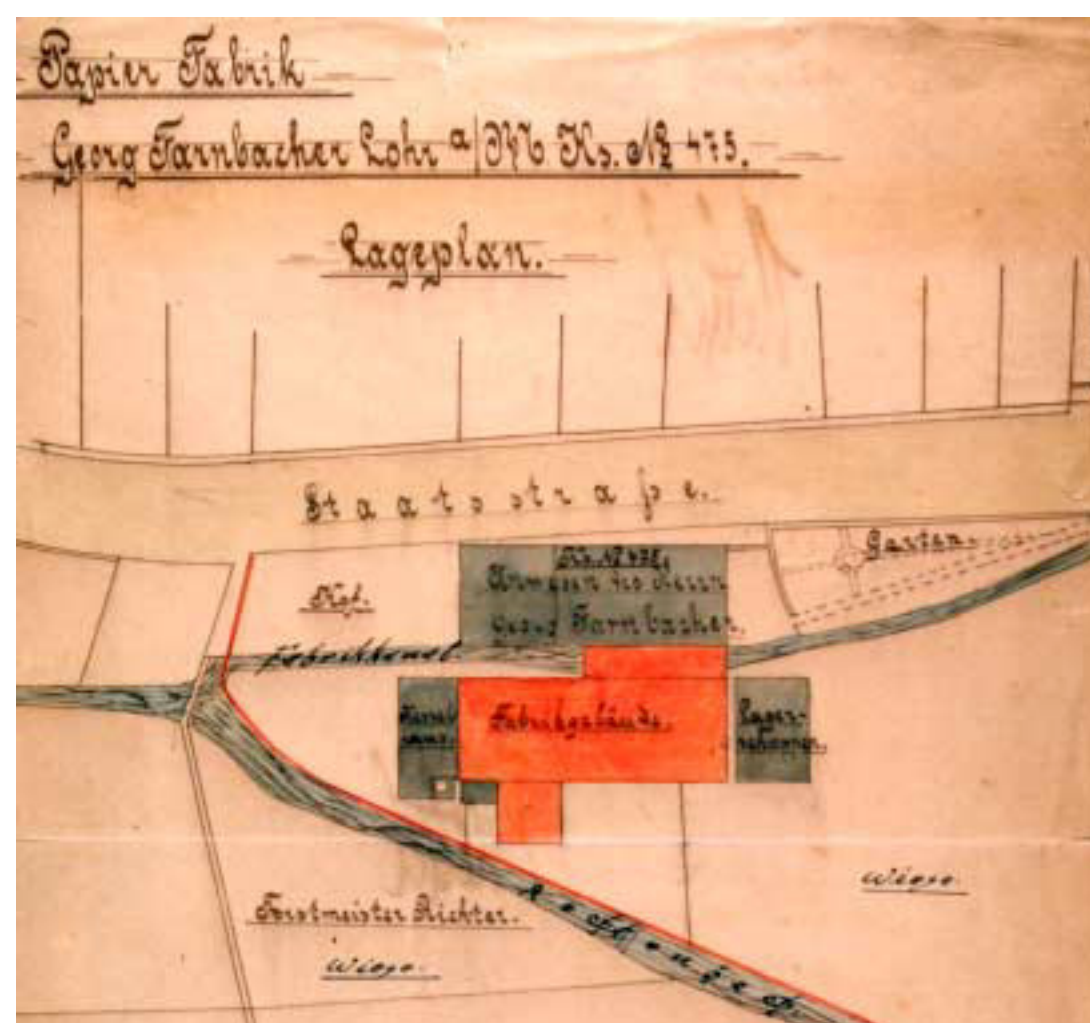 Papier Fabrik
Georg Farnbacher Lohr a/M Hs. № 475.
Lageplan.
Staatsstraße.
Garten.
Hs. № 475.
Anwesen des Herrn
Georg Farnbacher.
Hof.
Fabrikkanal.
Kessel
haus.
Fabrikgebäude.
Lager-
schuppen.
Wiese.
Forstmeister Richter.
Wiese.